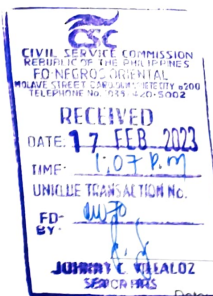 CSC
CIVIL SERVICE COMMISSION
REPUBLIC OF THE PHILIPPINES
FO-NEGROS ORIENTAL
MOLAVE STREET 6200
TELEPHONE No. 420-5002
RECEIVED
DATE: 17 FEB 2023
TIME: 1:07 P.M
UNIQUE TRANSACTION No.
FD-
BY-
JOHNNY C. VILLALOZ